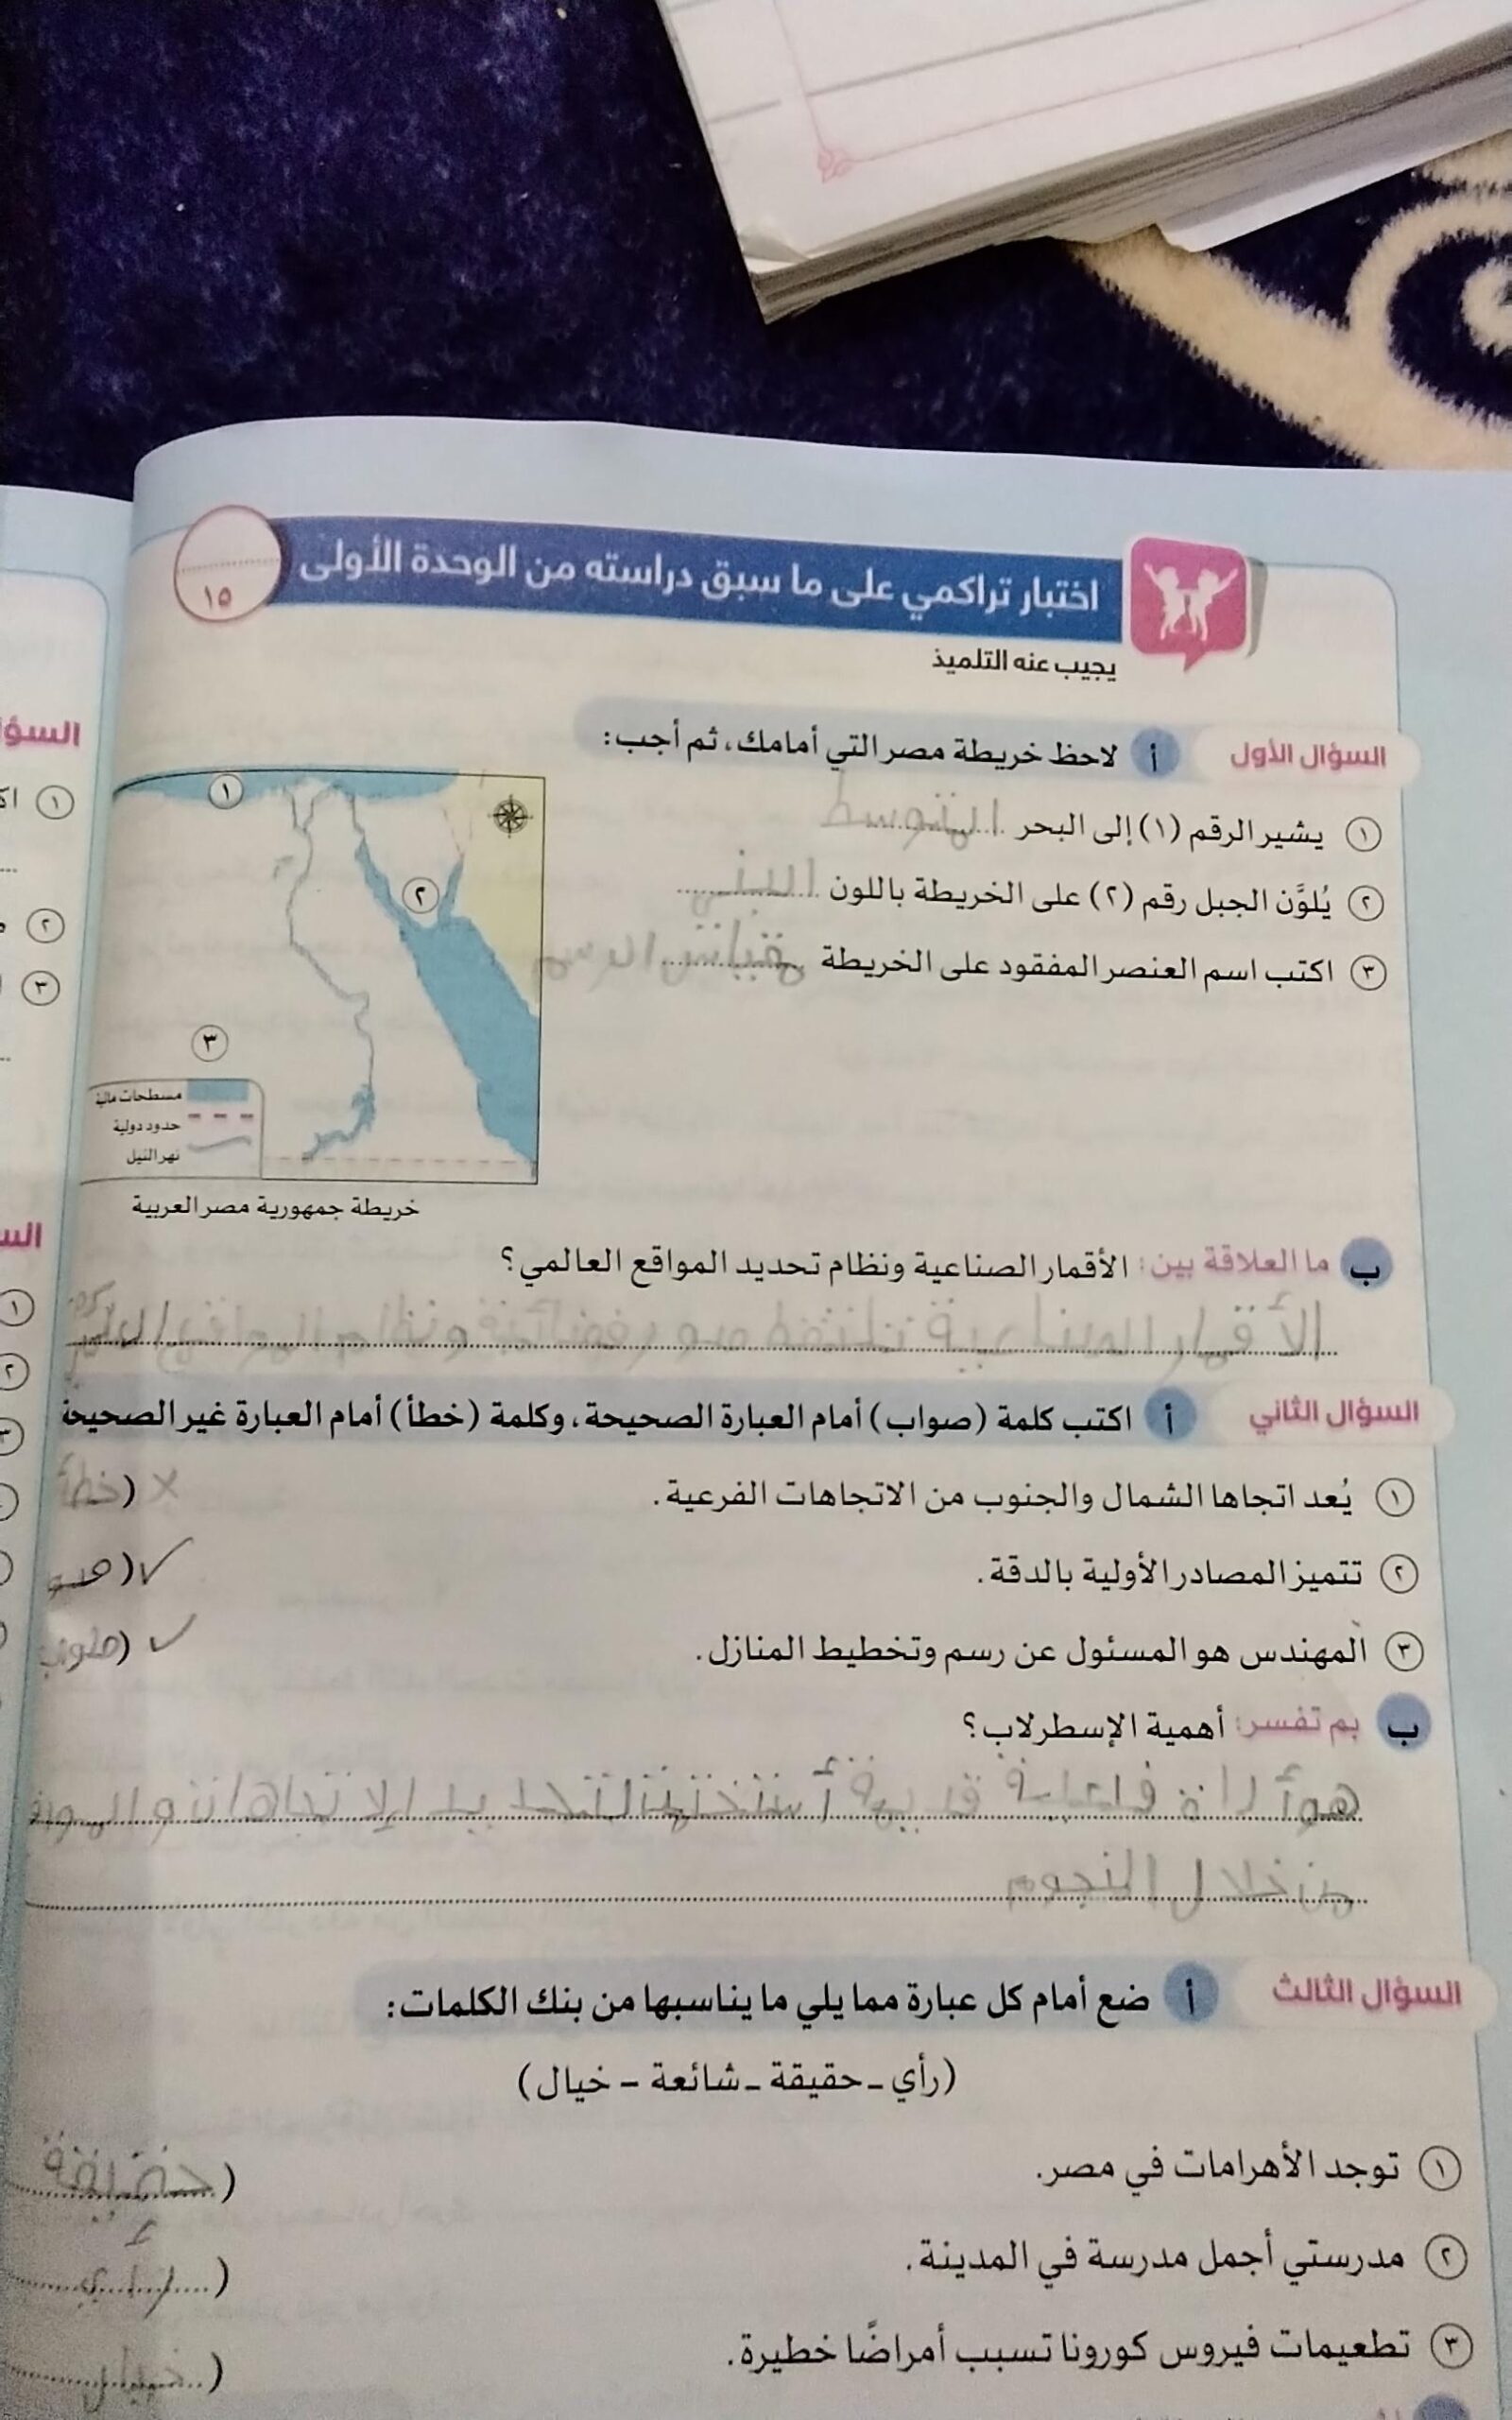 اختبار تراكمي على ما سبق دراسته من الوحدة الأولى
١٥
يجيب عنه التلميذ
السؤال الأول أ لاحظ خريطة مصر التي أمامك، ثم أجب:
١ يشير الرقم (١) إلى البحر المتوسط
٢ يُلوَّن الجبل رقم (٢) على الخريطة باللون البني
٣ اكتب اسم العنصر المفقود على الخريطة
١
٢
٣
مسطحات مائية
حدود دولية
نهر النيل
خريطة جمهورية مصر العربية
ب ما العلاقة بين: الأقمار الصناعية ونظام تحديد المواقع العالمي؟
السؤال الثاني أ اكتب كلمة (صواب) أمام العبارة الصحيحة، وكلمة (خطأ) أمام العبارة غير الصحيحة
١ يُعد اتجاها الشمال والجنوب من الاتجاهات الفرعية. × (خطأ
٢ تتميز المصادر الأولية بالدقة. ✓ (صو
٣ المهندس هو المسئول عن رسم وتخطيط المنازل. ✓ (صواب
ب بم تفسر: أهمية الإسطرلاب؟
من خلال النجوم
السؤال الثالث أ ضع أمام كل عبارة مما يلي ما يناسبها من بنك الكلمات:
(رأي - حقيقة - شائعة - خيال)
١ توجد الأهرامات في مصر. (حقيقة
٢ مدرستي أجمل مدرسة في المدينة. (رأي
٣ تطعيمات فيروس كورونا تسبب أمراضًا خطيرة. (خيال
السؤ
١
٢
٣
الس
١
٢
٣